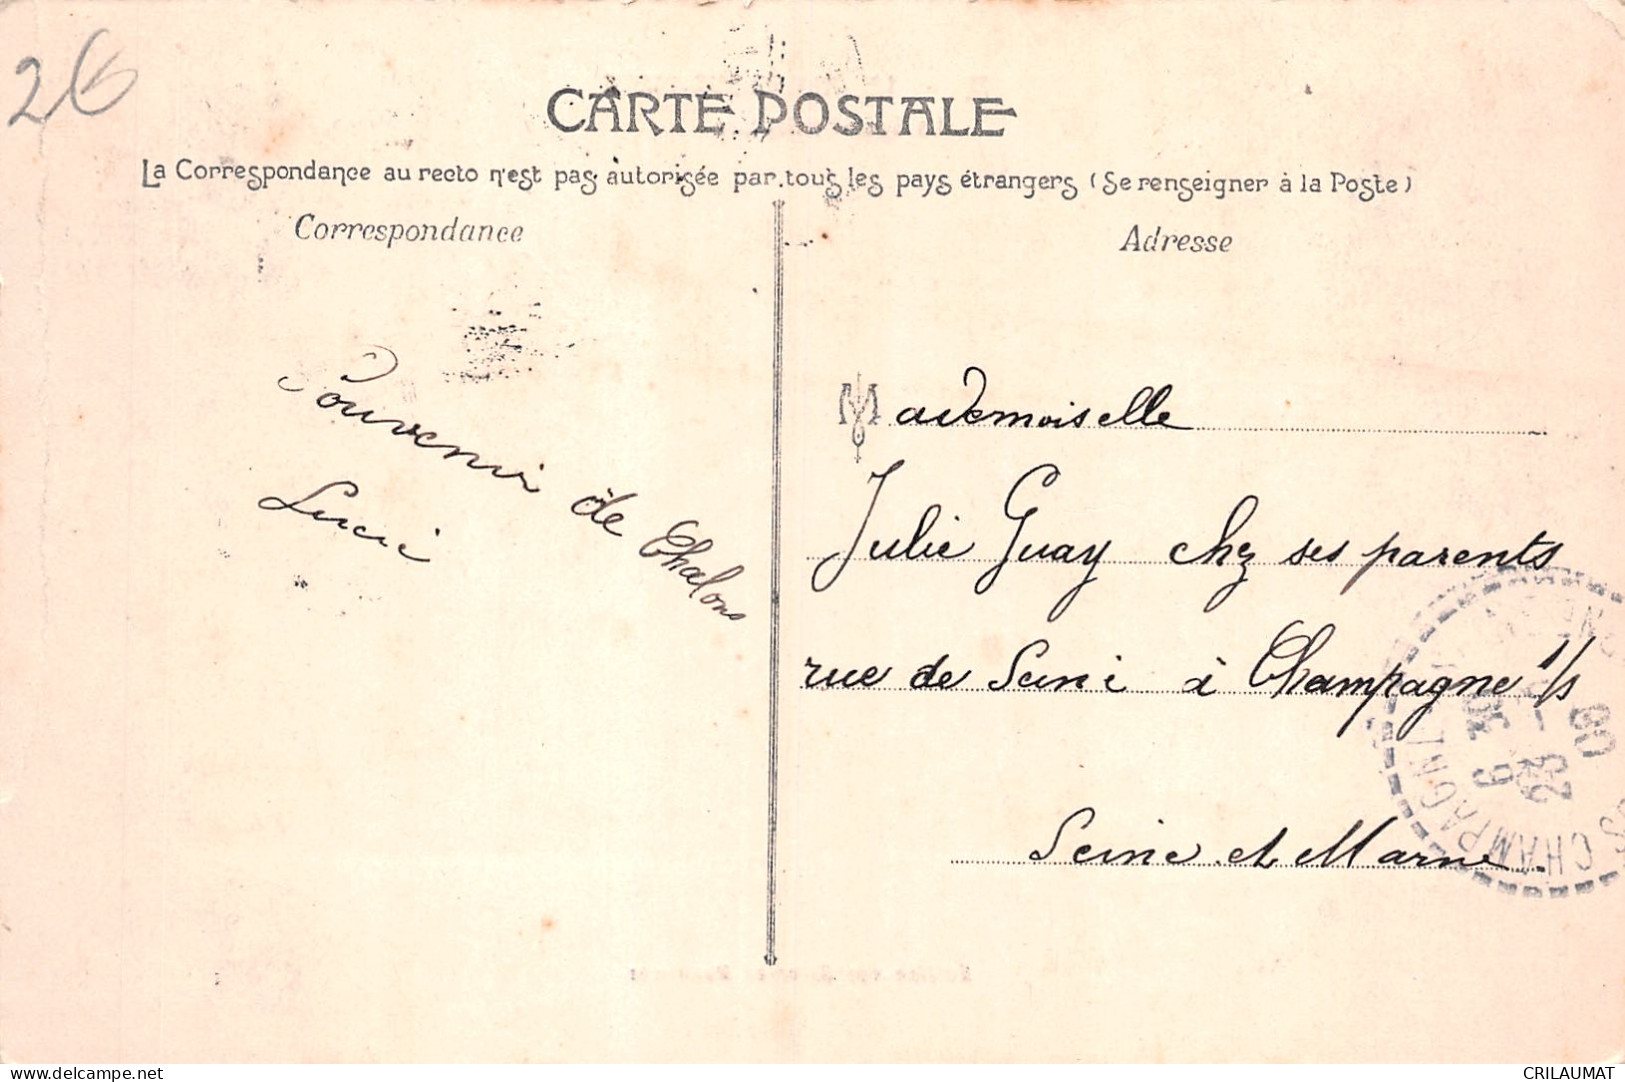 26
CARTE POSTALE
La Correspondance au recto n'est pas autorisée par tous les pays étrangers (Se renseigner à la Poste)
Correspondance
Adresse
Souvenir de Chalons
Lucie
Mademoiselle
Julie Guay chez ses parents
rue de Seine à Champagne s/s
Seine et Marne
CHAMPAGNE
23
09
www.delcampe.net
CRILAUMAT